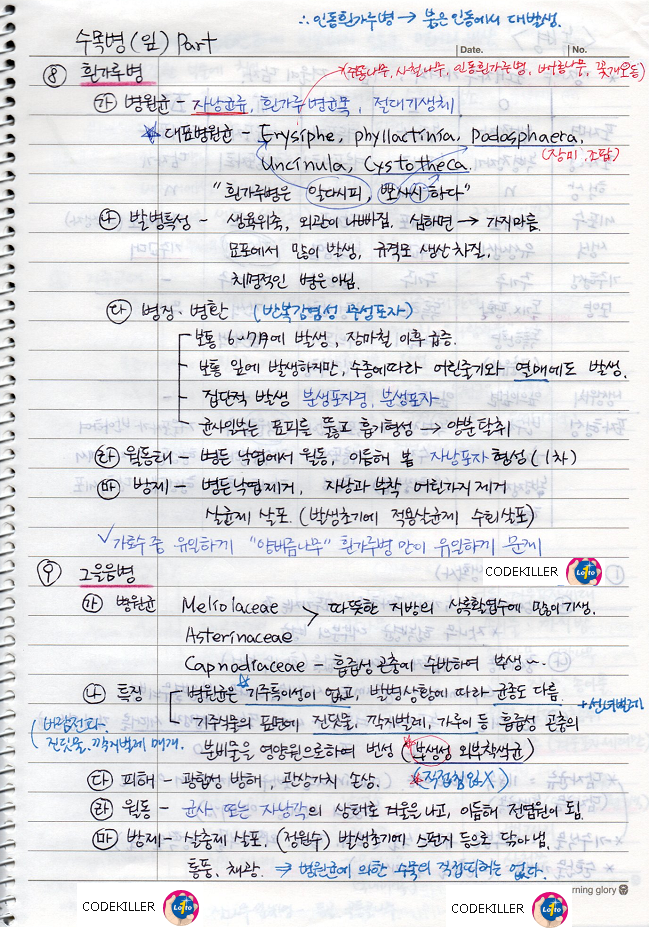 ∴ 인동흰가루병 → 붉은인동에서 대발생.
수목병 (잎) Part
Date. No.
*(쥐똥나무, 사철나무, 인동흰가루병, 버즘나무, 꽃개오동)
⑧ 흰가루병
㉮ 병원균 - 자낭균류, 흰가루병균목, 절대기생체
★ 대표병원균 - Erysiphe, phyllactinia, Podosphaera,
(장미, 조팝)
Uncinula, Cystotheca.
"흰가루병은 알다시피, 뽀사시하다"
㉯ 발병특성 - 생육위축, 외관이 나빠짐, 심하면 → 가지마름.
묘포에서 많이 발생, 규격묘 생산 차질,
치명적인 병은 아님.
㉰ 병징·병환 (반복감염성 무성포자)
- 보통 6~7月에 발생, 장마철 이후 급증.
- 보통 잎에 발생하지만, 수종에따라 어린줄기와 열매에도 발생.
- 집단적 발생 분생포자경, 분생포자
- 균사일부는 표피를 뚫고 흡기형성 → 양분탈취
㉱ 월동태 - 병든 낙엽에서 월동, 이듬해 봄 자낭포자 형성 (1차)
㉲ 방제 - 병든낙엽제거, 자낭과 부착 어린가지 제거
살균제 살포. (발생초기에 적용살균제 수회살포)
√ 가로수 중 유일하게 "양버즘나무" 흰가루병 만이 유일하게 문제
CODEKILLER Lotto
⑨ 그을음병
㉮ 병원균 Meliolaceae > 따뜻한 지방의 상록활엽수에 많이 기생.
Asterinaceae
Capnodiaceae - 흡즙성 곤충에 수반하여 발생~.
㉯ 특징 - 병원균은 기주특이성이 없고, 발병상황에 따라 균종도 다름.
+ 선녀벌레
- 기주식물의 표면에 진딧물, 깍지벌레, 가루이 등 흡즙성 곤충의
(바람전파.
진딧물, 깍지벌레 매개.
분비물을 영양원으로하여 번성 (부생성 외부착색균)
㉰ 피해 - 광합성 방해, 관상가치 손상. *(직접침입X)
㉱ 월동 - 균사 또는 자낭각의 상태로 겨울을 나고, 이듬해 전염원이 됨.
㉲ 방제 - 살충제 살포. (정원수) 발생초기에 스펀지 등으로 닦아냄,
통풍, 채광. → 병원균에 의한 수목의 직접피해는 없다.
rning glory
CODEKILLER Lotto
CODEKILLER Lotto